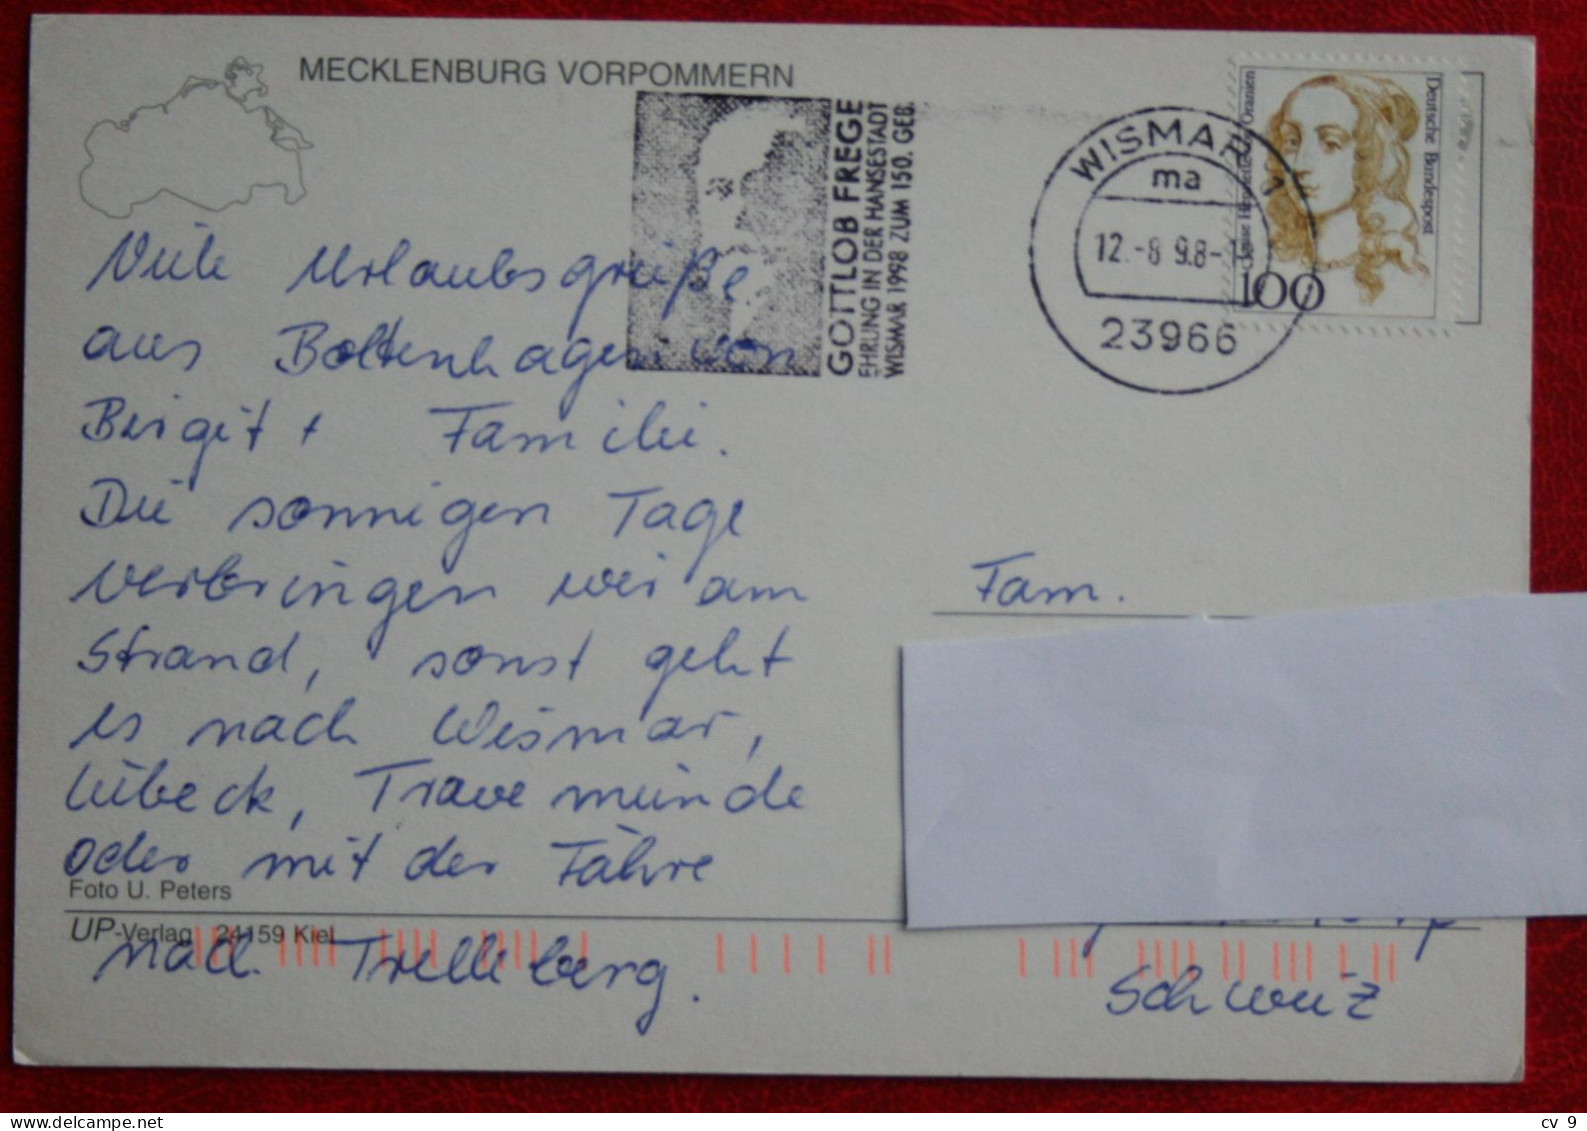 MECKLENBURG VORPOMMERN
GOTTLOB FREGE
EHRUNG IN DER HANSESTADT
WISMAR 1998 ZUM 150. GEB.
WISMAR 1
ma
12.-8 9.8-1
23966
Luise Henriette von Oranien
Deutsche Bundespost
100
Viele Urlaubsgrüße
aus Boltenhagen von
Birgit + Familie.
Die sonnigen Tage
verbringen wir am
Strand, sonst geht
es nach Wismar,
Lübeck, Travemünde
oder mit der Fähre
nach Trelleborg.
Foto U. Peters
UP-Verlag 24159 Kiel
Fam.
Schweiz
cv 9